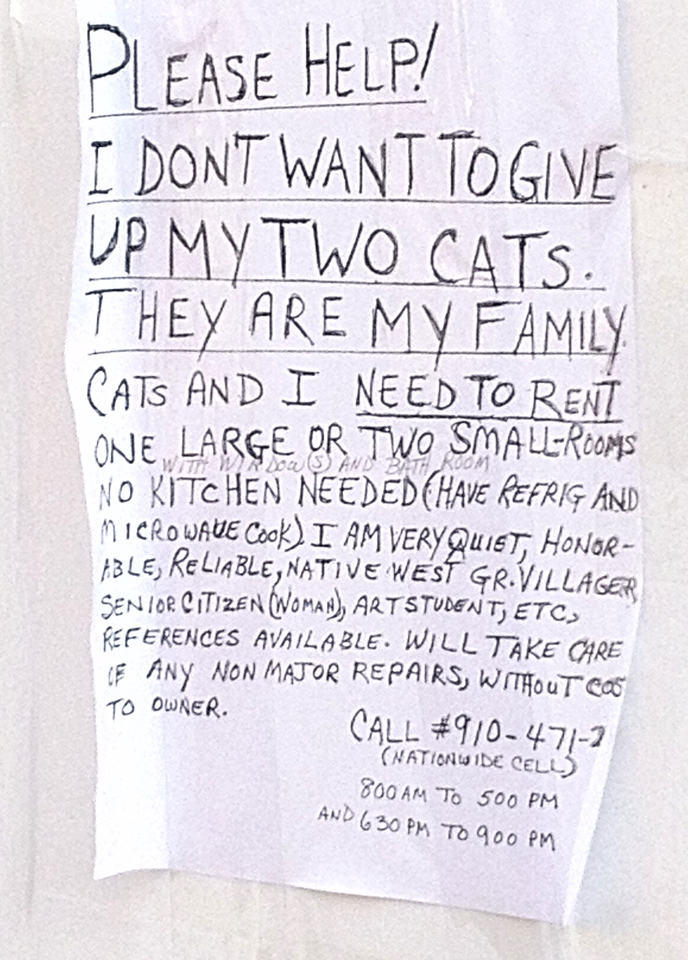 PLEASE HELP!
I DONT WANT TO GIVE
UP MY TWO CATS.
THEY ARE MY FAMILY
CATS AND I NEED TO RENT
ONE LARGE OR TWO SMALL-ROOMS
WITH WINDOW(S) AND BATH ROOM
NO KITCHEN NEEDED (HAVE REFRIG AND
MICROWAVE COOK) I AM VERY QUIET, HONOR-
ABLE, RELIABLE, NATIVE WEST GR. VILLAGER
SENIOR CITIZEN (WOMAN), ART STUDENT, ETC,
REFERENCES AVAILABLE. WILL TAKE CARE
OF ANY NON MAJOR REPAIRS, WITHOUT COS
TO OWNER.
CALL #910-471-
(NATIONWIDE CELL)
800 AM TO 500 PM
AND 630 PM TO 900 PM